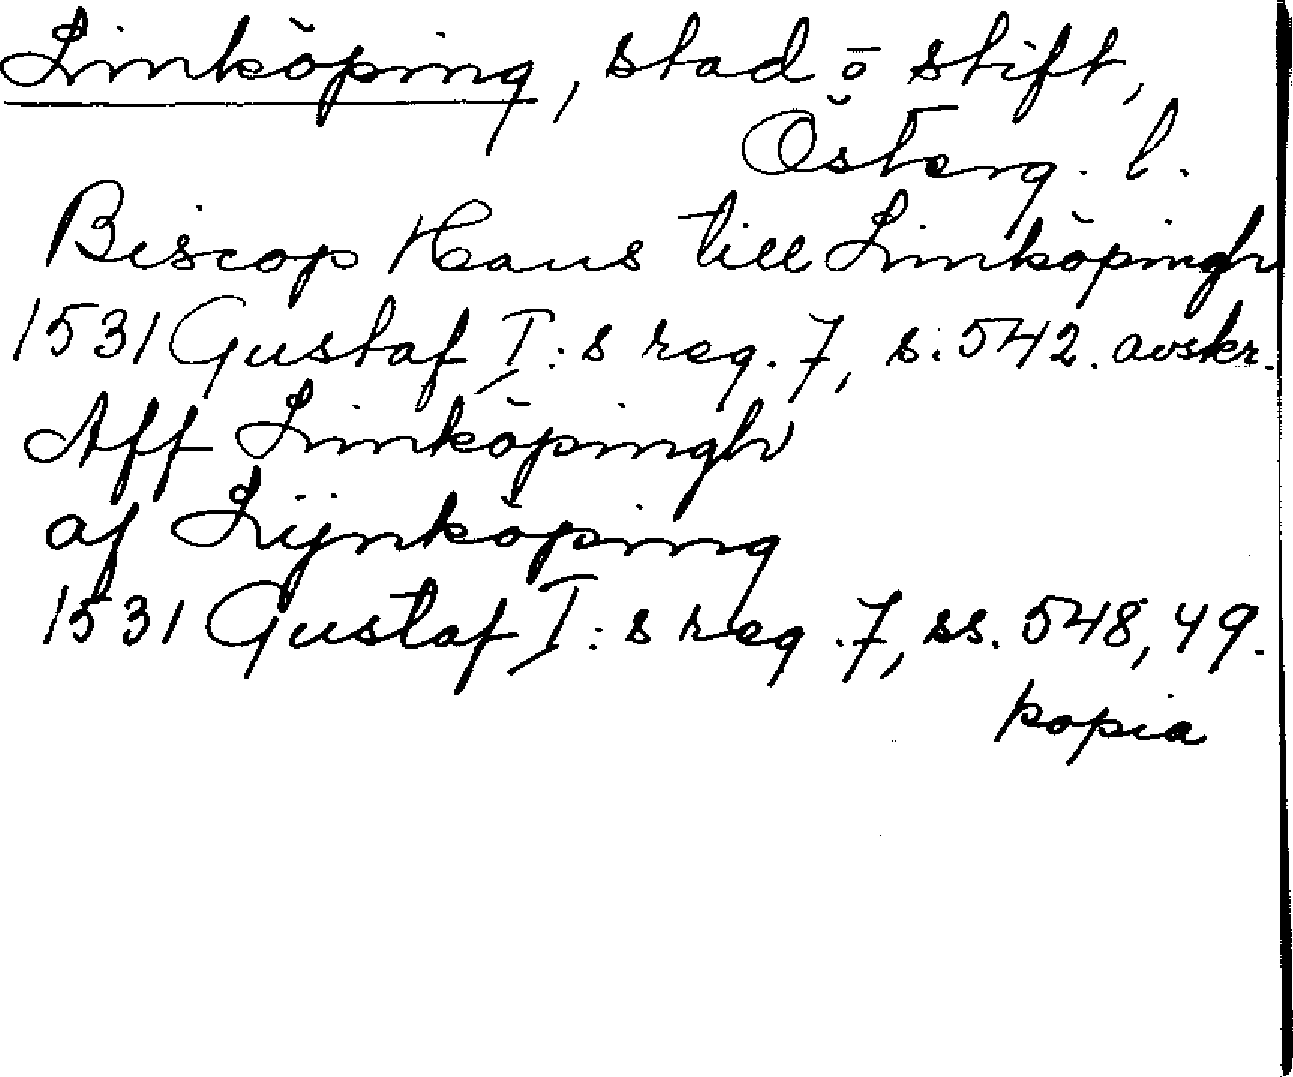 Linköping, stad o stift,
Österg. l.
Biscop Hans till Linköpingh
1531 Gustaf I:s reg. 7, s. 542. avskr.
Aff Linköpingh
af Lijnköping
1531 Gustaf I:s reg. 7, ss. 548, 49.
kopia